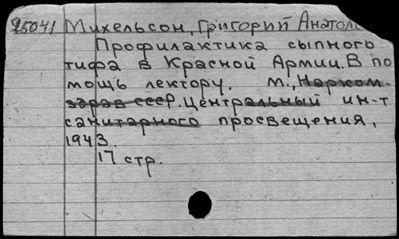 25041 Михельсон, Григорий Анатол
Профилактика сыпного
тифа в Красной Армии. В по
мощь лектору. М., Нарком-
здрав СССР. Центральный ин-т
санитарного просвещения,
1943.
17 стр.